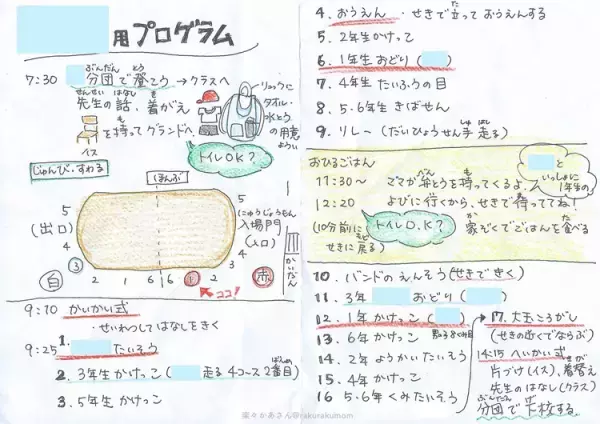 用プログラム
7:30 分団で登こう→クラスへ
ぶんだん とう
先生の話、着がえ
せんせい はなし き
リュックに
タオル・
水とう
の用意
ようい
イス
を持ってグランドへ
も
トイレOK?
じゅんび・すわる
ほんぶ
5
(出口)
4
3
白
2 1 6 6 1 2
ココ!
5
(にゅうじょうもん)
入場門
(入口)
4
3
赤
かいだん
9:10 かいかい式
・せいれつしてはなしをきく
9:25 1. たいそう
2. 3年生かけっこ( 走る 4コース 2番目)
ばんめ
3. 5年生 かけっこ
4. おうえん ・せきで立って おうえんする
た
5. 2年生かけっこ
6. 1年生おどり( )
7. 4年生 たいふうの目
8. 5.6年生 きばせん
9. リレー(だいひょうせん手 走る)
しゅ はし
おひるごはん
11:30〜
12:20
(10分前に
せきに戻る)
もど
ママが弁とうを持ってくるよ。
べん も
よびに行くから、せきで待っててね!
い ま
トイレO.K?
家ぞくでごはんを食べる
か た
と
いっしょに
1年生の
10. バンドのえんそう(せきできく)
11. 3年 おどり( )
12. 1年 かけっこ( )
13. 6年 かけっこ
14. 2年 ようかいたいそう
15. 4年 かけっこ
16 5.6年 くみたいそう
17. 大玉ころがし
(せきの近くでならぶ)
14:15 へいかい式
片づけ(イス)、着替え
きが
先生のはなし(クラス)
分団で下校する
ぶんだん
楽々かあさん@rakurakumom